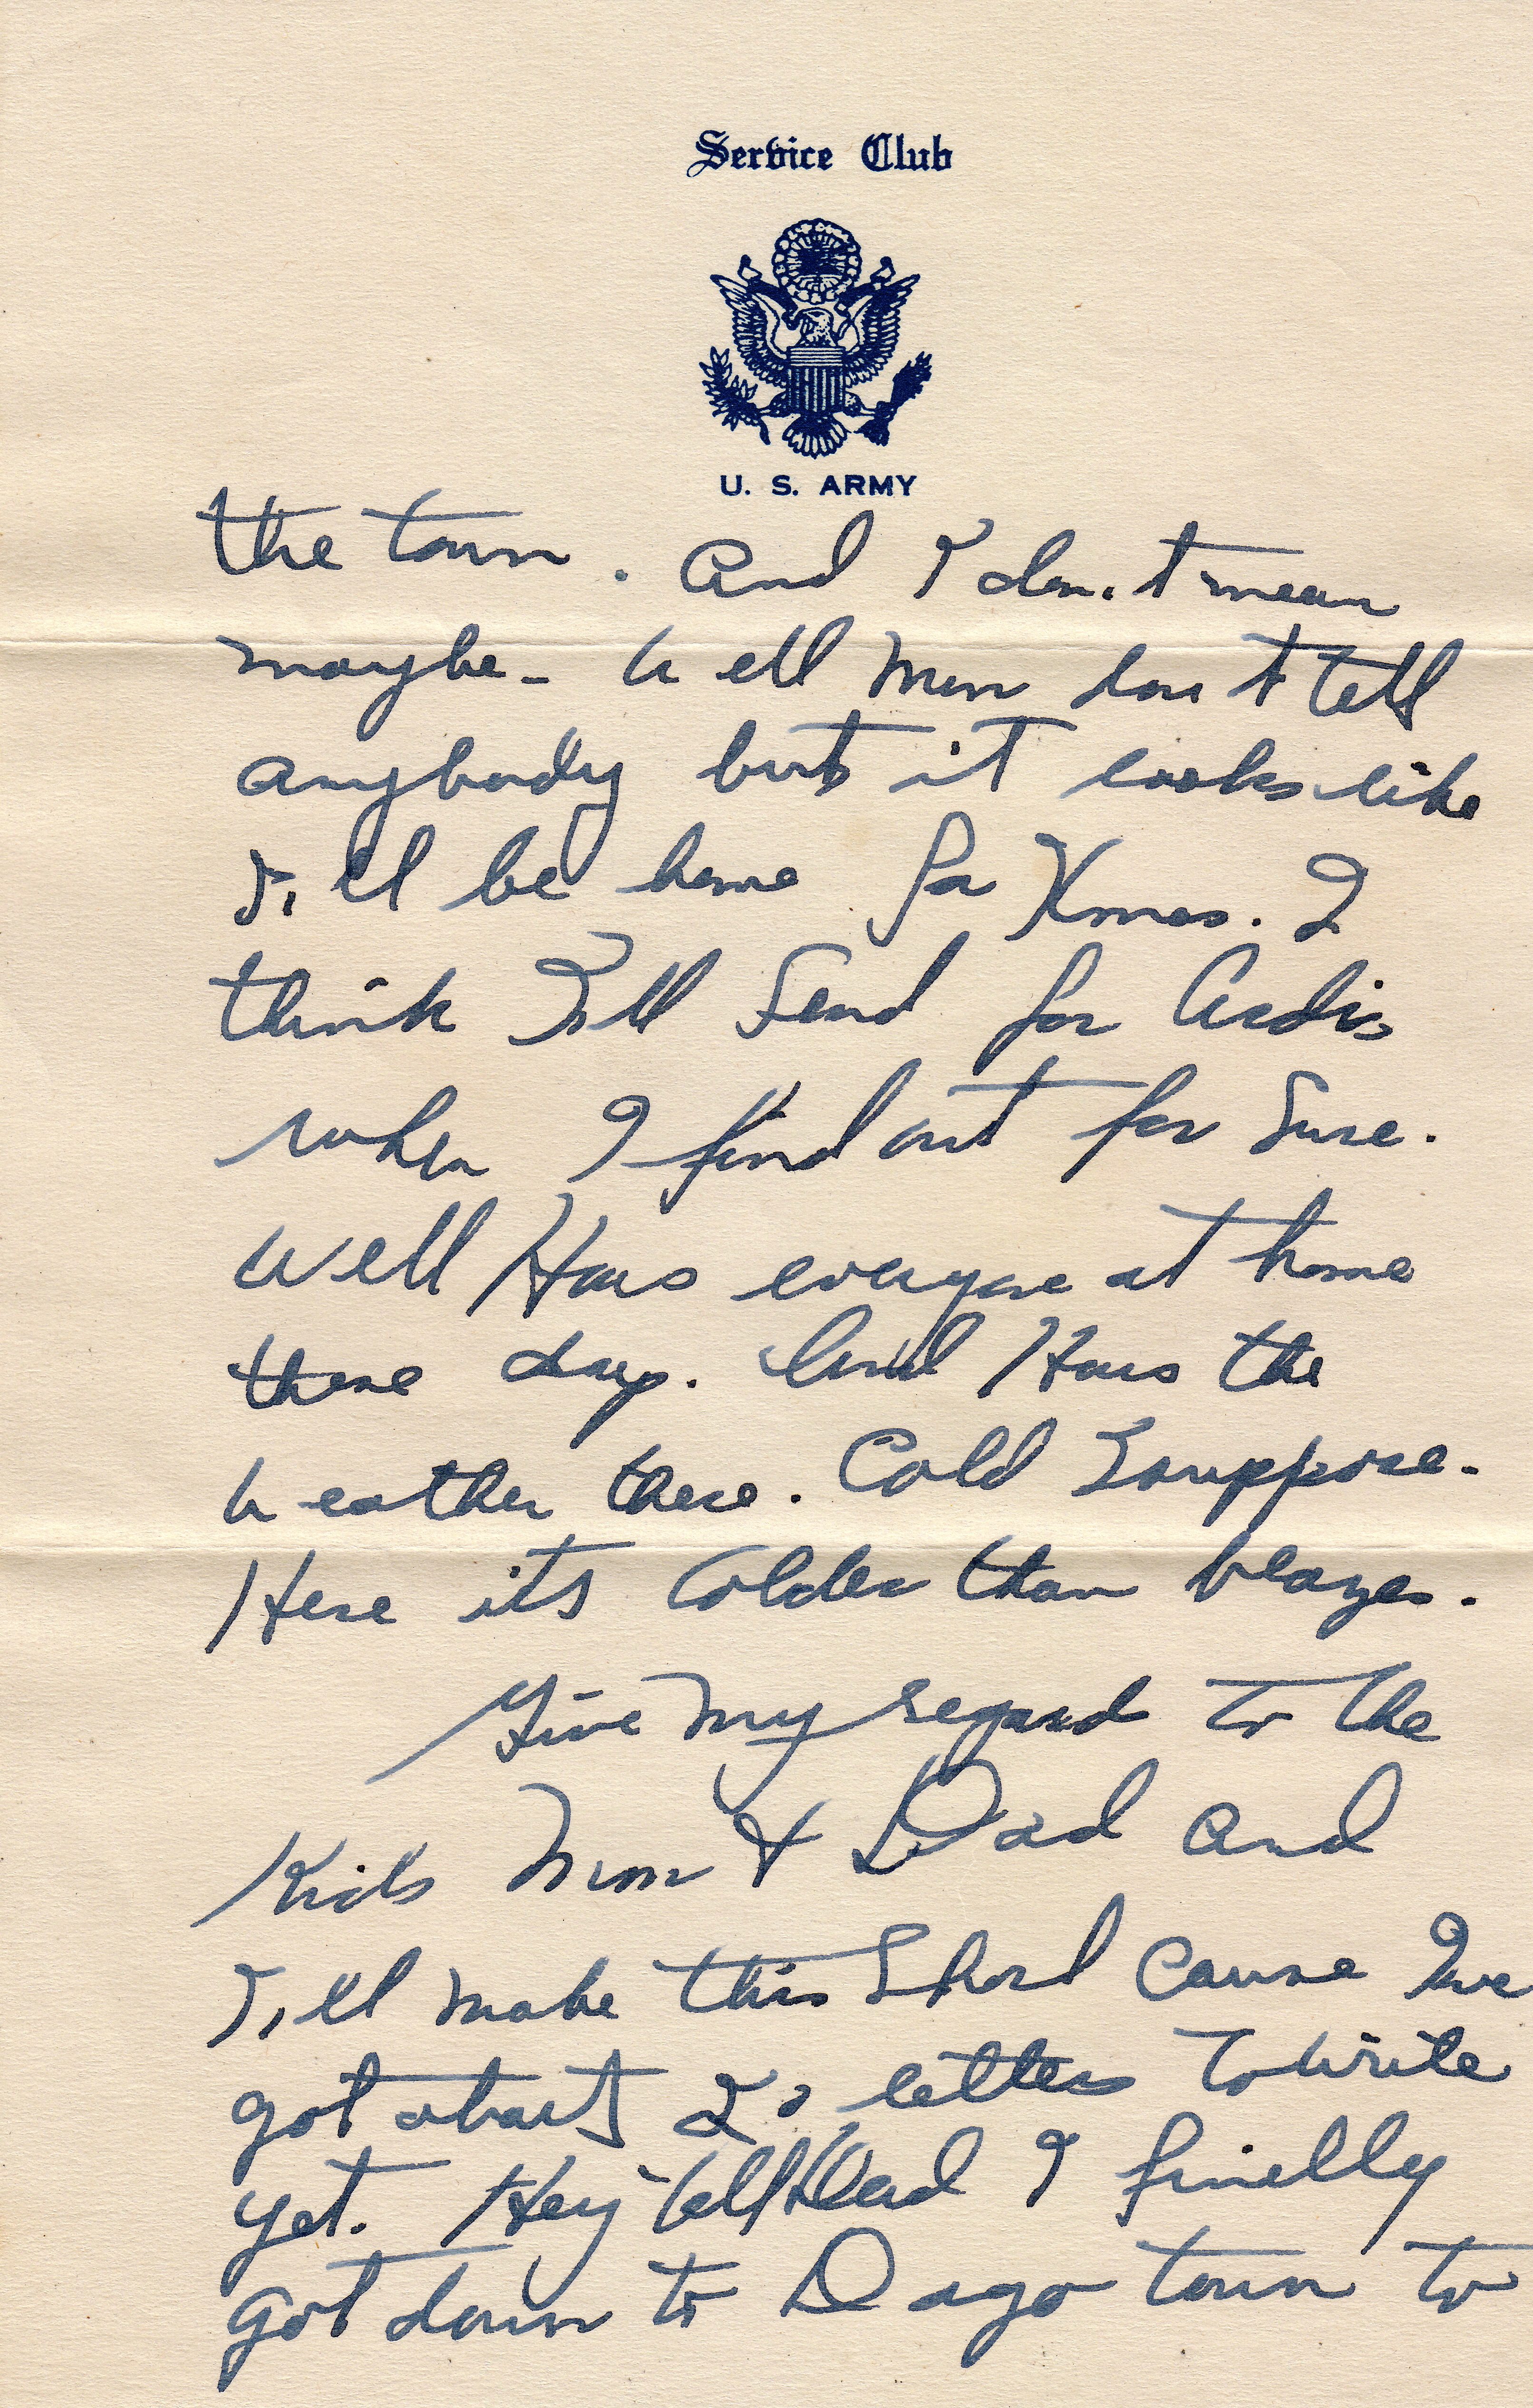 Service Club
U. S. ARMY
the town. And I don't mean
maybe - Well Mom don't tell
anybody but it looks like
I'll be home for Xmas. I
think I'll Send for Ardis
when I find out for Sure.
Well Hows everyone at home
these days. And Hows the
weather there. Cold I suppose.
Here its colder than blazes.
Give my regard to the
Kids Mom & Dad and
I'll make this Short cause I've
got about 20 letters to write
yet. Hey tell Dad I finelly
got down to Dago town to